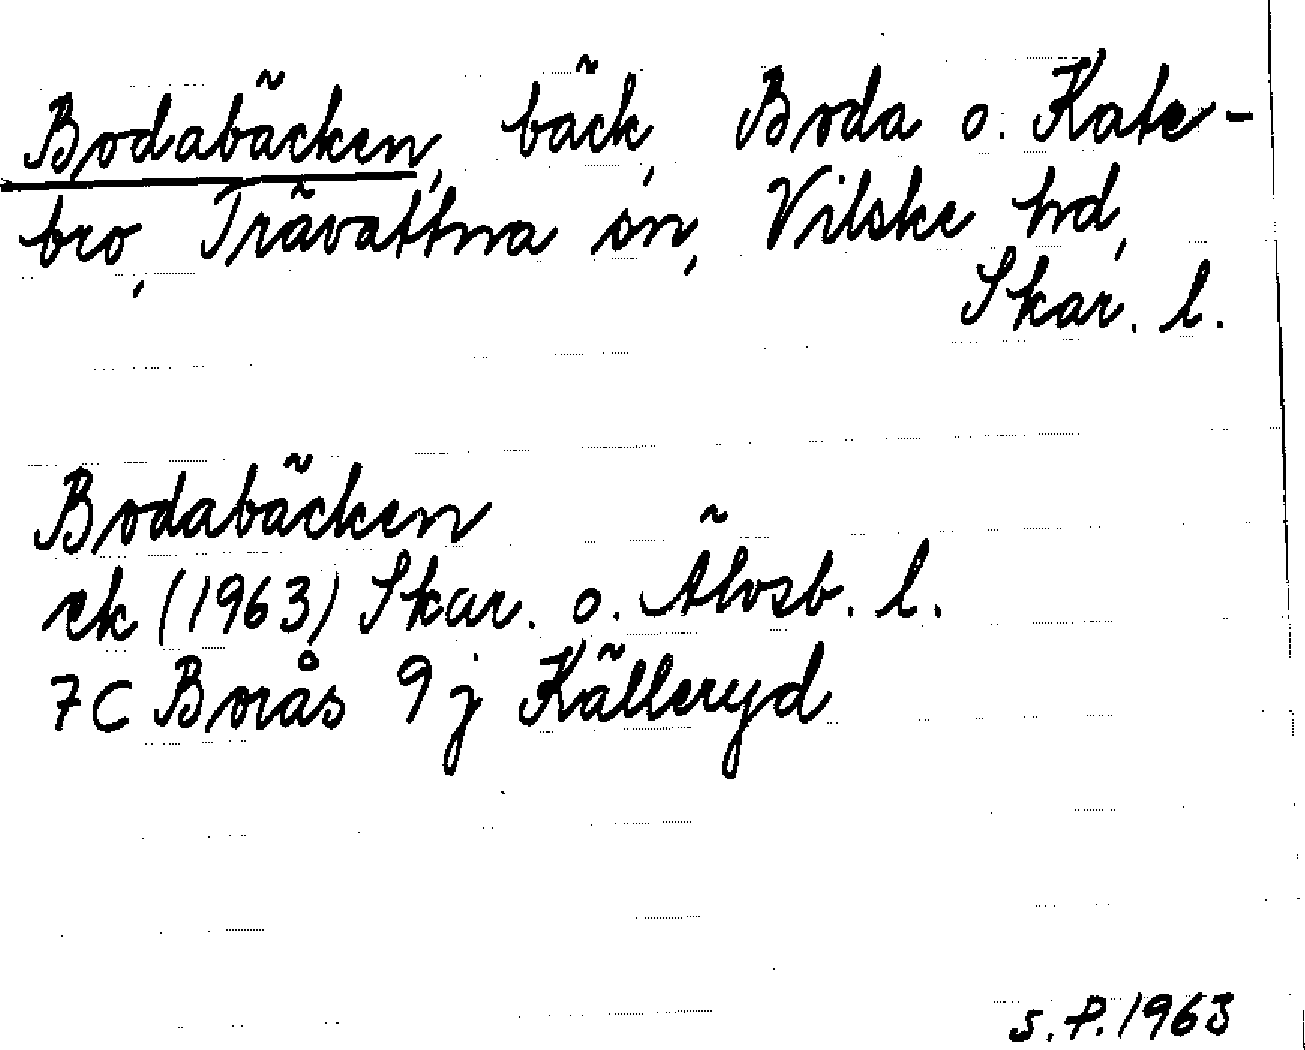 Bodabäcken, bäck, Boda o. Kate-
bro, Trävattna sn, Vilske hd,
Skar. l.
Bodabäcken
ek (1963) Skar. o. Älvsb. l.
7C Borås 9j Källeryd
S.P. 1963